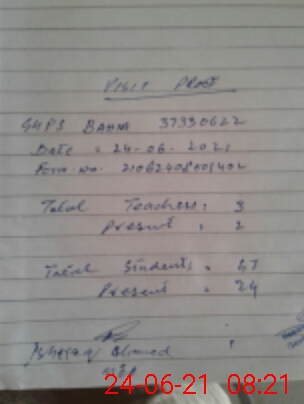 VISIT PROOF
GHPS 37330622
Date = 24-06-2021
Form. no.
Total Teachers : 3
Present : 2
Total Students :
Present : 24
Ahmed
24-06-21 08:21